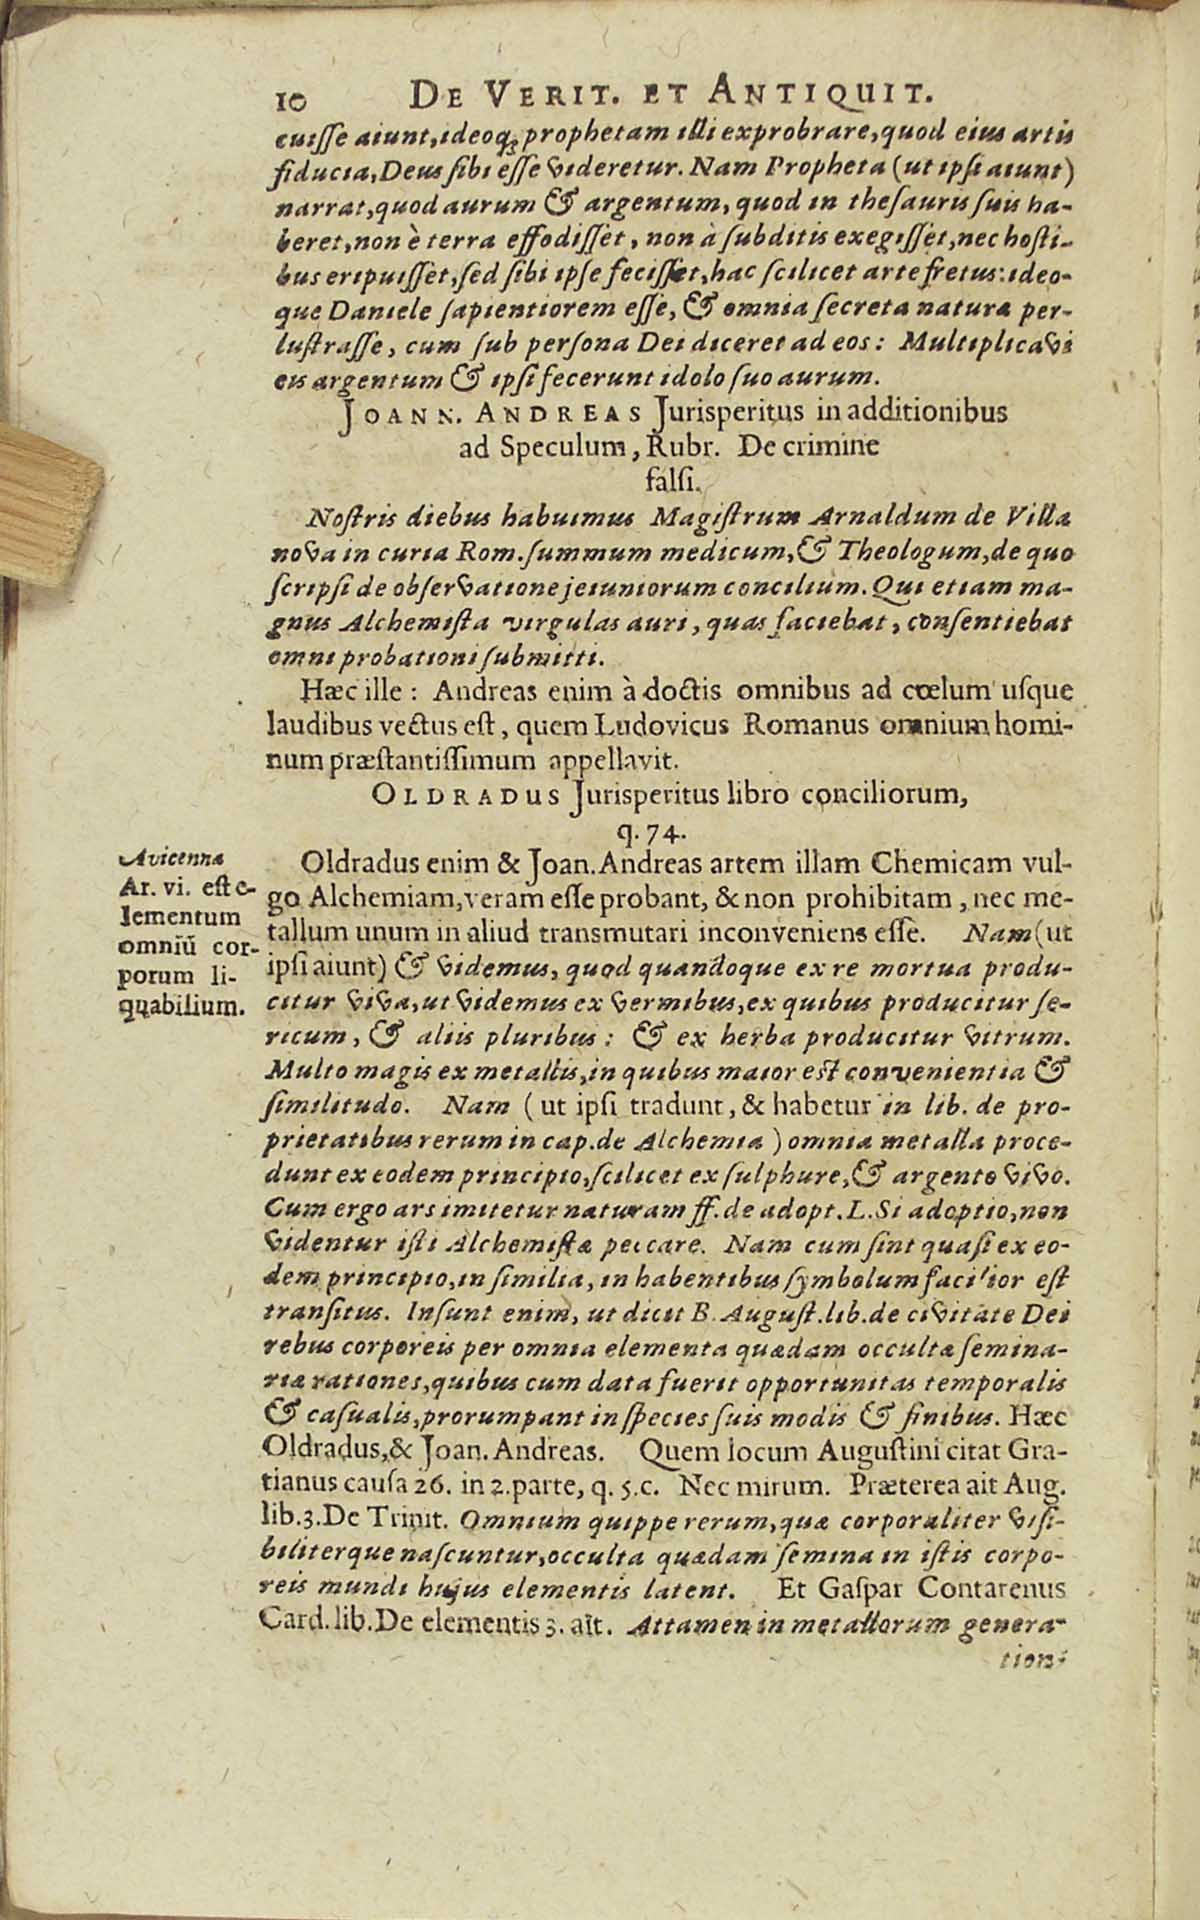 10 DE VERIT. ET ANTIQUIT.
cuiſſe aiunt, ideoq; prophetam illi exprobrare, quod eius artis
fiducia, Deus ſibi eſſe videretur. Nam Propheta (ut ipſi aiunt)
narrat, quod aurum & argentum, quod in theſauris ſuis ha-
beret, non è terra effodiſſet, non à ſubditis exegiſſet, nec hoſti-
bus eripuiſſet, ſed ſibi ipſe feciſſet, hac ſcilicet arte fretus: ideo-
que Daniele ſapientiorem eſſe, & omnia ſecreta naturæ per-
luſtraſſe, cum ſub perſona Dei diceret ad eos: Multiplicavi
eis argentum & ipſi fecerunt idolo ſuo aurum.
JOANN. ANDREAS Jurisperitus in additionibus
ad Speculum, Rubr. De crimine
falſi.
Noſtris diebus habuimus Magiſtrum Arnaldum de Villa
nova in curia Rom. ſummum medicum, & Theologum, de quo
ſcripſi de obſervatione jeiuniorum concilium. Qui etiam ma-
gnus Alchemiſta virgulas auri, quas faciebat, conſentiebat
omni probationi ſubmitti.
Hæc ille: Andreas enim à doctis omnibus ad cœlum uſque
laudibus vectus eſt, quem Ludovicus Romanus omnium homi-
num præſtantiſſimum appellavit.
OLDRADUS Jurisperitus libro conciliorum,
q. 74.
Oldradus enim & Joan. Andreas artem illam Chemicam vul-
go Alchemiam, veram eſſe probant, & non prohibitam, nec me-
tallum unum in aliud transmutari inconveniens eſſe. Nam (ut
ipſi aiunt) & videmus, quod quandoque ex re mortua produ-
citur viva, ut videmus ex vermibus, ex quibus producitur ſe-
ricum, & aliis pluribus: & ex herba producitur vitrum.
Multo magis ex metallis, in quibus maior eſt convenientia &
ſimilitudo. Nam (ut ipſi tradunt, & habetur in lib. de pro-
prietatibus rerum in cap. de Alchemia) omnia metalla proce-
dunt ex eodem principio, ſcilicet ex ſulphure, & argento vivo.
Cum ergo ars imitetur naturam ff. de adopt. L. Si adoptio, non
videntur iſti Alchemiſtæ peccare. Nam cum ſint quaſi ex eo-
dem principio, in ſimilia, in habentibus ſymbolum facilior eſt
tranſitus. Inſunt enim, ut dicit B. Auguſt. lib. de civitate Dei
rebus corporeis per omnia elementa quædam occultæ ſemina-
riæ rationes, quibus cum data fuerit opportunitas temporalis
& caſualis, prorumpant in ſpecies ſuis modis & finibus. Hæc
Oldradus, & Joan. Andreas. Quem locum Auguſtini citat Gra-
tianus cauſa 26. in 2. parte, q. 5. c. Nec mirum. Præterea ait Aug.
lib. 3. De Trinit. Omnium quippe rerum, quæ corporaliter viſi-
biliterque naſcuntur, occulta quædam ſemina in iſtis corpo-
reis mundi hujus elementis latent. Et Gaſpar Contarenus
Card. lib. De elementis 3. ait. Attamen in metallorum genera-
tion-
Avicenna
Ar. vi. eſt e-
lementum
omniũ cor-
porum li-
quabilium.